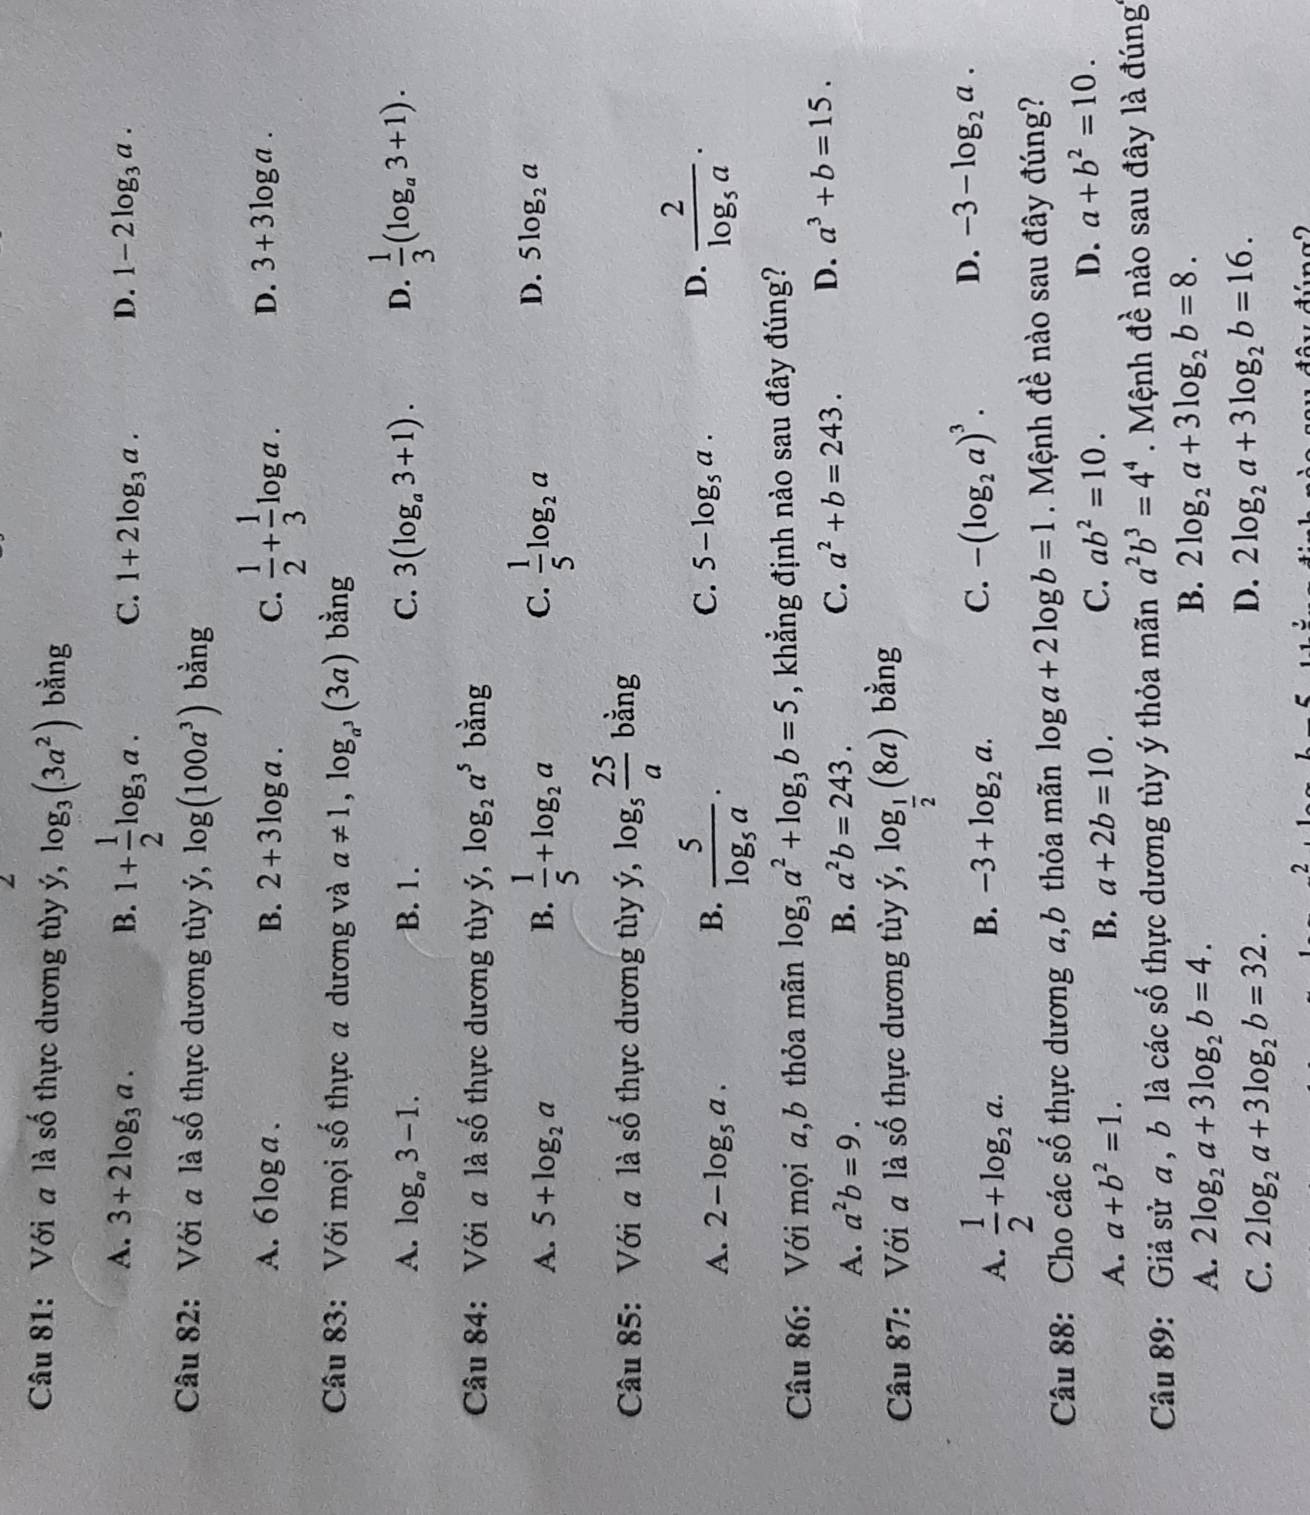 Câu 81: Với a là số thực dương tùy ý, log₃(3a²) bằng
A. 3+2log₃a. B. 1+1/2 log₃a. C. 1+2log₃a. D. 1−2log₃a.
Câu 82: Với a là số thực dương tùy ý, log(100a³) bằng
A. 6loga. B. 2+3loga. C. 1/2+1/3 loga. D. 3+3loga.
Câu 83: Với mọi số thực a dương và a≠1, log_{a³}(3a) bằng
A. logₐ3−1. B. 1. C. 3(logₐ3+1). D. 1/3(logₐ3+1).
Câu 84: Với a là số thực dương tùy ý, log₂a⁵ bằng
A. 5+log₂a B. 1/5+log₂a C. 1/5 log₂a D. 5log₂a
Câu 85: Với a là số thực dương tùy ý, log₅ 25/a bằng
A. 2−log₅a. B. 5/log₅a. C. 5−log₅a. D. 2/log₅a.
Câu 86: Với mọi a,b thỏa mãn log₃a²+log₃b=5, khẳng định nào sau đây đúng?
A. a²b=9. B. a²b=243. C. a²+b=243. D. a³+b=15.
Câu 87: Với a là số thực dương tùy ý, log_{1/2}(8a) bằng
A. 1/2+log₂a. B. −3+log₂a. C. −(log₂a)³. D. −3−log₂a.
Câu 88: Cho các số thực dương a,b thỏa mãn loga+2logb=1. Mệnh đề nào sau đây đúng?
A. a+b²=1. B. a+2b=10. C. ab²=10. D. a+b²=10.
Câu 89: Giả sử a, b là các số thực dương tùy ý thỏa mãn a²b³=4⁴. Mệnh đề nào sau đây là đúng
A. 2log₂a+3log₂b=4. B. 2log₂a+3log₂b=8.
C. 2log₂a+3log₂b=32. D. 2log₂a+3log₂b=16.